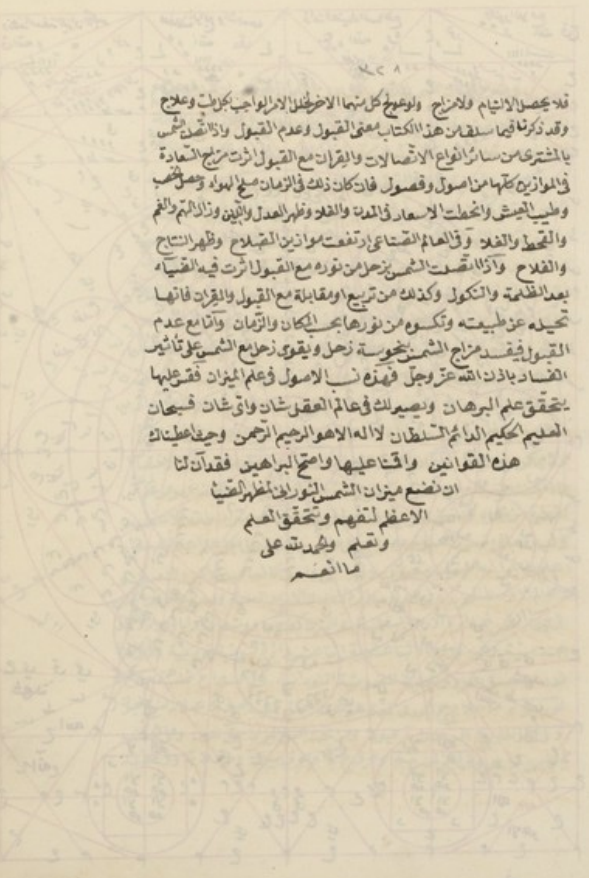 ٣٢٨
فلا يحصل الالتيام ولا مزاج ولو عولج كل منهما الاخر لخلل الامر الواجب بكل طب وعلاج
وقد ذكرنا فيما سلف من هذا الكتاب معنى القبول وعدم القبول واذا اتصل الشمس
بالمشترى من سائر انواع الاتصالات والقران مع القبول اثرت مزاج السعادة
فى الموازين كلها من اصول وفصول فان كان ذلك فى الزمان صلح الهواء وحصل الخصب
وطيب العيش وانحطت الاسعار فى المدن والفلا وظهر العدل والدين وزال الهم والغم
والقحط والغلا وفى العالم الصناعى ارتفعت موازين الصلاح وظهر النتاج
والفلاح واذا اتصلت الشمس بزحل من نوره مع القبول اثرت فيه الضياء
بعد الظلمة والنكول وكذلك من تربيع او مقابلة مع القبول والقران فانها
تحيله عن طبيعته وتكسوه من نورها بحسب المكان والزمان واما مع عدم
القبول فيفسد مزاج الشمس بنحوسة زحل ويقوى زحل مع الشمس على تاثير
الفساد باذن الله عز وجل فهذه نسب الاصول فى علم الميزان فقس عليها
يتحقق علم البرهان ويصير لك فى عالم العقل شان واى شان فسبحان
العليم الحكيم الدائم السلطان لا اله الا هو الرحيم الرحمن وحيث اعطيناك
هذه القوانين واقمنا عليها واضح البراهين فقد آن لنا
ان نضع ميزان الشمس النورانى المظهر الضيا
الاعظم لتفهم وتتحقق العلم
وتعلم والحمد لله على
ما انعم